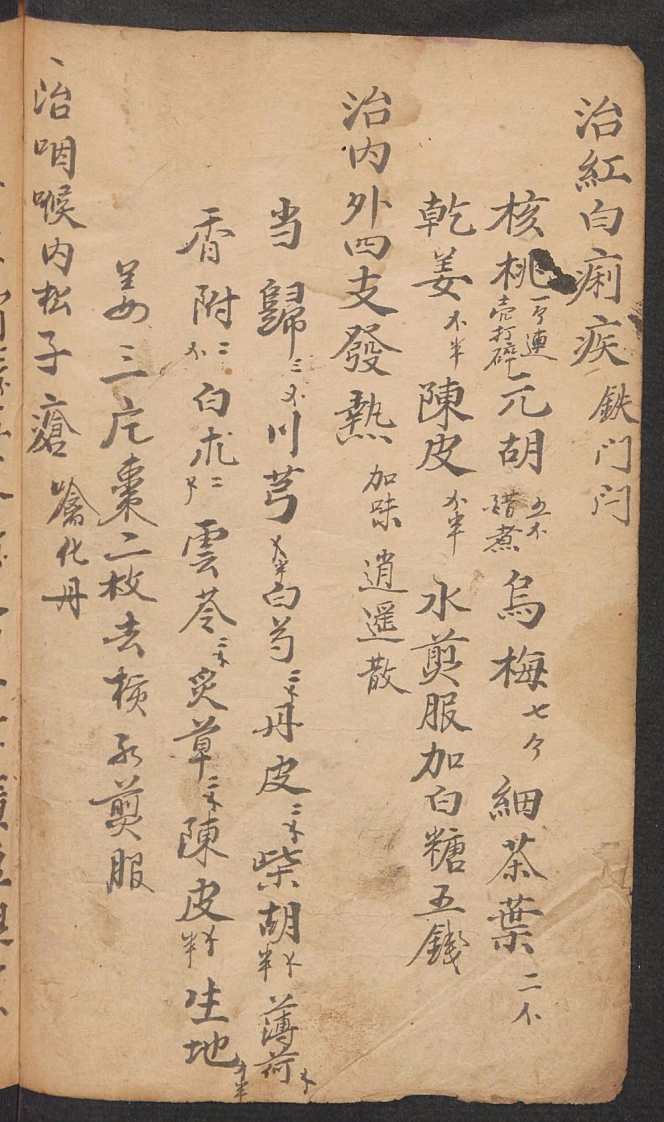 治紅白痢疾 鉄门闩
核桃一个連壳打碎 元胡五不醋煮 烏梅七个 細茶葉二不
乾姜不半 陳皮不半 水煎服加白糖五錢
治内外四支發熱 加味 逍遥散
当歸三不 川芎不半 白芍二不 丹皮二不 柴胡不半 薄荷不
香附二不 白朮二不 雲苓二不 炙草二不 陳皮不半 生地不半
姜三片棗二枚去核水煎服
治咽喉内松子瘡 噙化丹